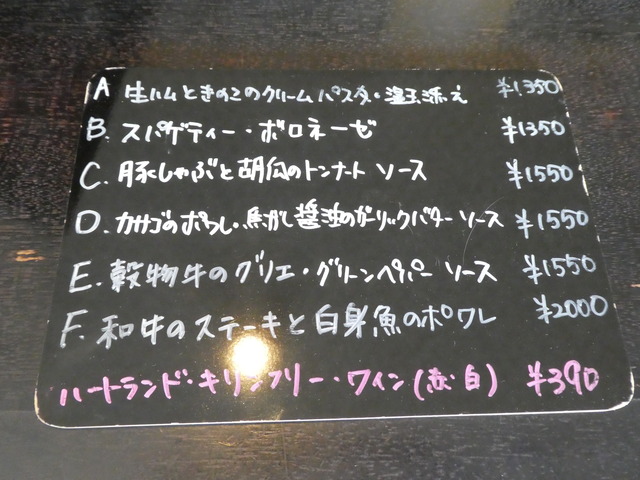 A 生ハムときのこのクリームパスタ・温玉添え ¥1,350
B. スパゲティー・ボロネーゼ ¥1350
C. 豚しゃぶと胡瓜のトンナートソース ¥1550
D. カサゴのポワレ・焦がし醤油のガーリックバターソース ¥1550
E. 穀物牛のグリエ・グリーンペパーソース ¥1550
F. 和牛のステーキと白身魚のポワレ ¥2000
ハートランド・キリンフリー・ワイン(赤・白) ¥390